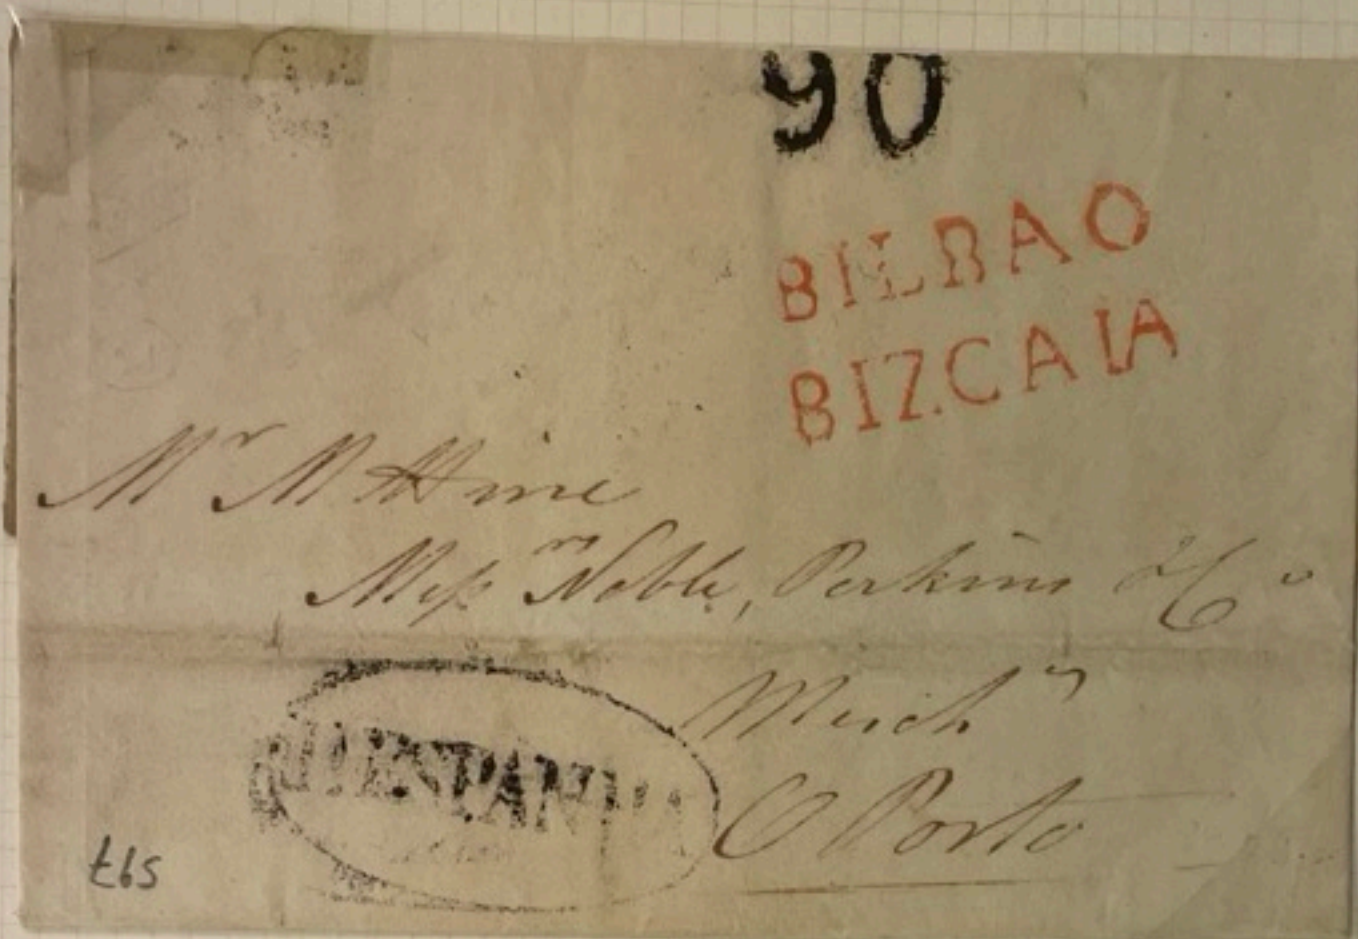 90
BILBAO
BIZCAIA
Mr M Hine
Messrs Noble, Perkins & Co
Merchts
O Porto
ESPANHA
£65